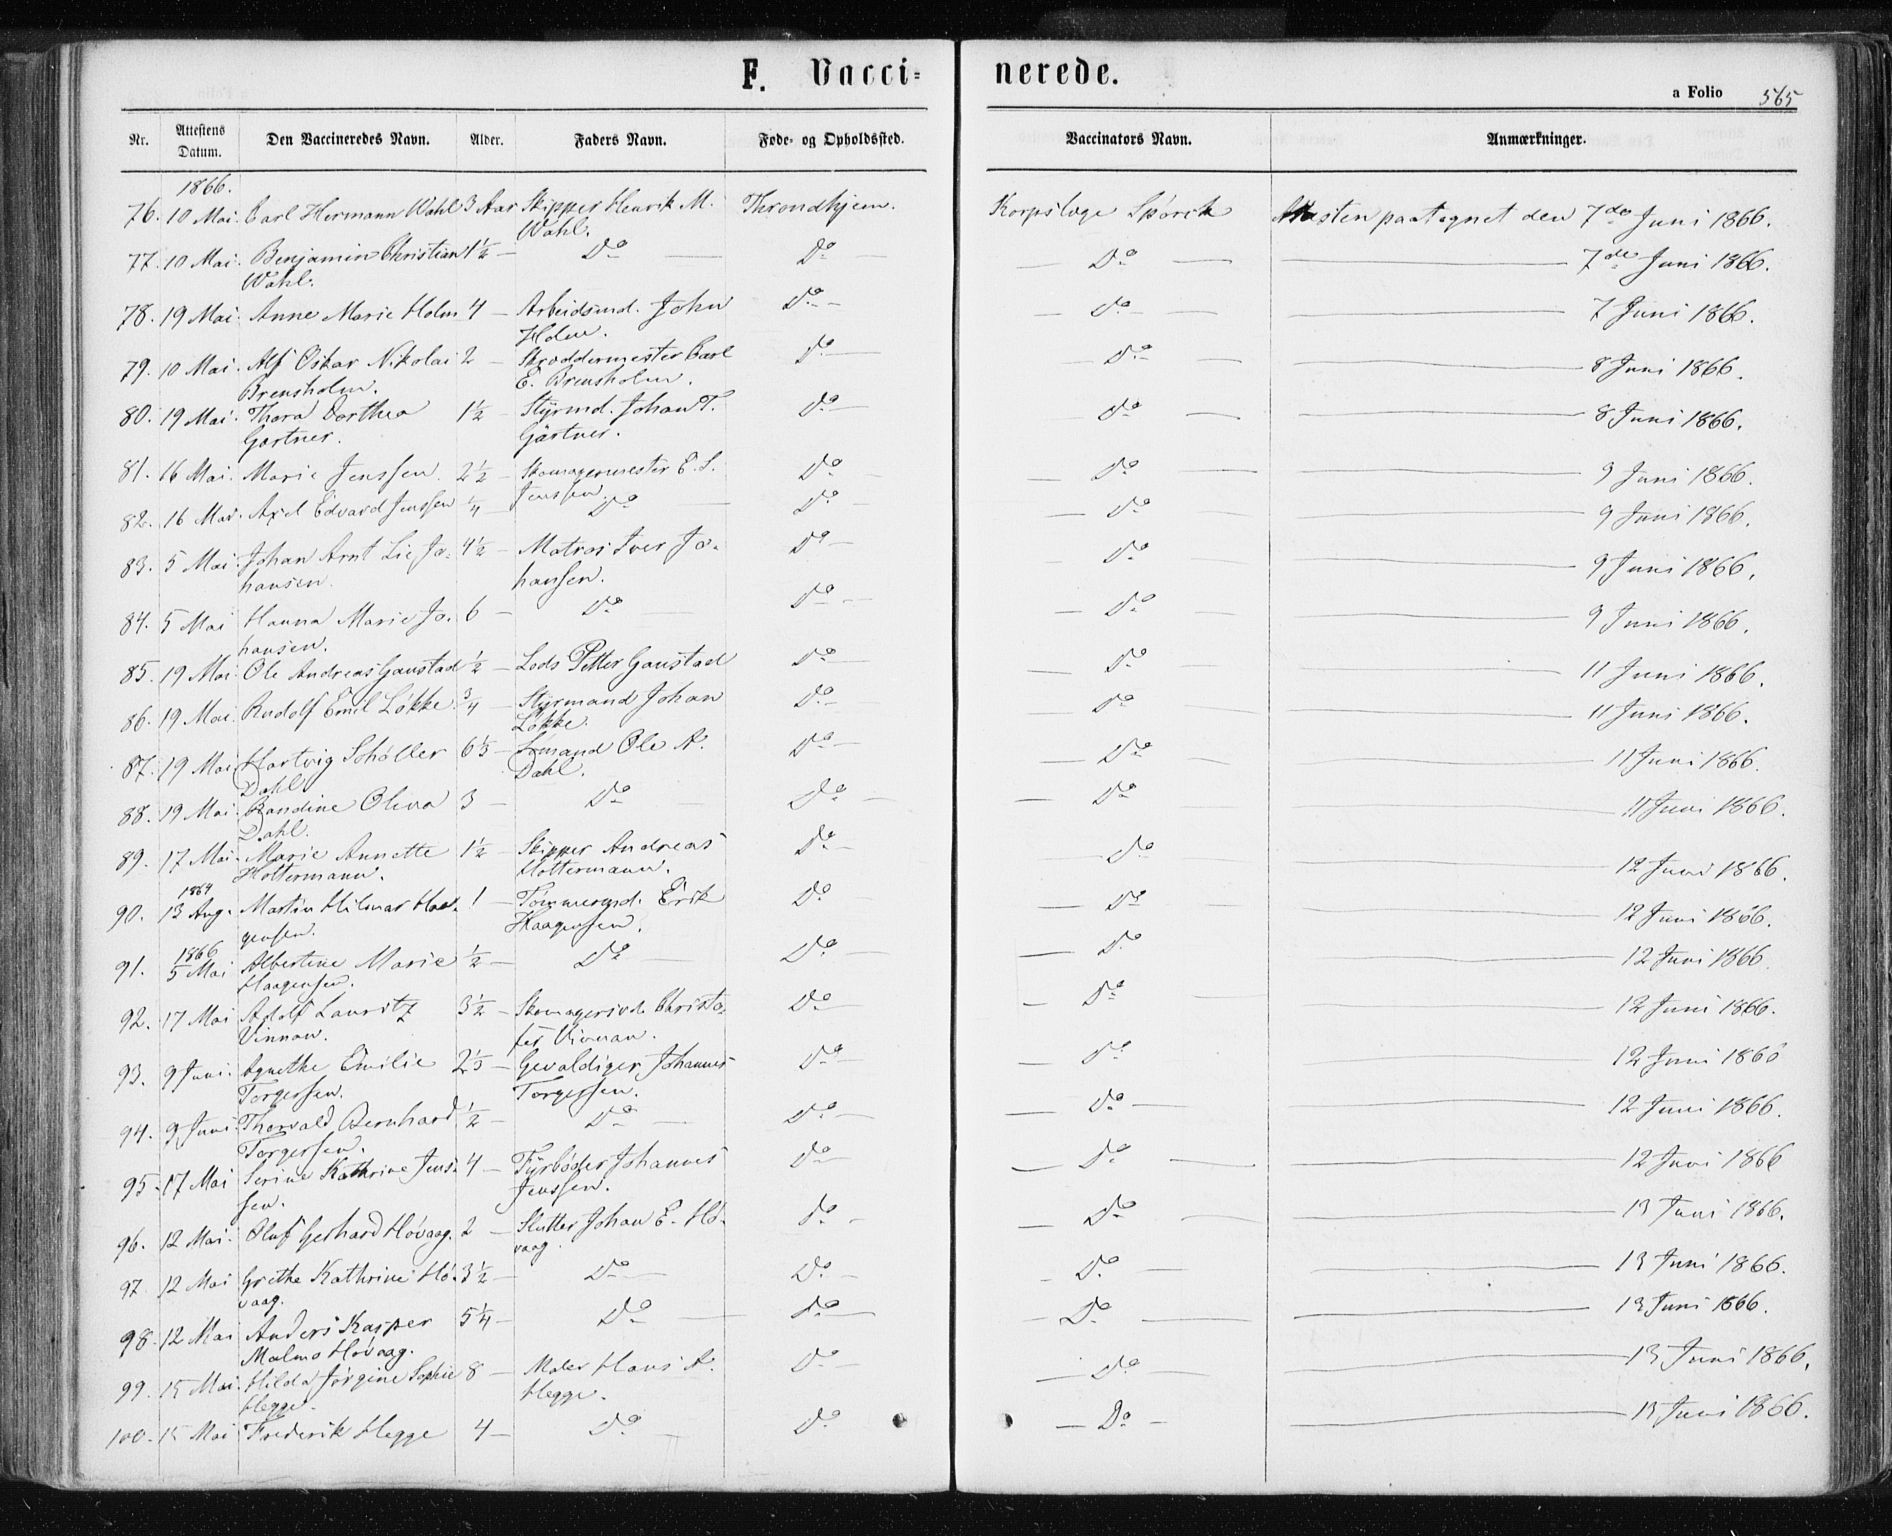 F. Vacci-nerede.
a Folio 565
Nr. Attestens Datum. Den Vaccineredes Navn. Alder. Faders Navn. Føde- og Opholdssted. Vaccinators Navn. Anmærkninger.
1866.
76. 10 Mai. Carl Hermann Wahl 3 Aar Skipper Henrik M. Throndhjem. Korpslæge Spørck Attesten paategnet den 7de Juni 1866.
Wahl.
77. 10 Mai. Benjamin Christian 1½ — Do — Do — Do — 7de Juni 1866.
Wahl.
78. 19 Mai. Anne Marie Holm 4 — Arbeidsmd. John Do — — Do — 7 Juni 1866.
Holm.
79. 10 Mai. Alf Oskar Nikolai 2 — Skræddermester Carl Do — — Do — 8 Juni 1866.
Brensholm. E. Brensholm.
80. 19 Mai. Thora Dorthea 1½ — Styrmd. Johan T. Do — Do — 8 Juni 1866.
Gartner. Gärtner.
81. 16 Mai. Marie Jenssen. 2½ — Skomagermester E. S. Do — — Do — 9 Juni 1866.
Jenssen.
82. 16 Mai. Axel Edvard Jenssen ¼ — Do — Do — — Do — 9 Juni 1866.
83. 5 Mai. Johan Arnt Lie Jo- 4½ — Matros Iver Jo- Do — — Do — 9 Juni 1866.
hansen. hansen.
84. 5 Mai Hanna Marie Jo- 6 — Do — Do — — Do — 9 Juni 1866.
hansen.
85. 19 Mai. Ole Andreas Gaustad ½ — Lods Petter Gaustad Do — — Do — 11 Juni 1866.
86. 19 Mai. Rudolf Emil Løkke. ¾ — Styrmand Johan Do — — Do — 11 Juni 1866.
Løkke.
87. 19 Mai. Hartvig Schøller 6½ — Sømand Ole A. Do — — Do — 11 Juni 1866.
Dahl Dahl.
88. 19 Mai. Randine Oliva 3 — Do Do — — Do 11 Juni 1866.
Dahl.
89. 17 Mai. Marie Annette 1½ — Skipper Andreas Do — — Do — 12 Juni 1866.
Hottermann. Hottermann.
1864
90. 13 Aug. Martin Hilmar Haa- 1 — Tømmermd. Erik Do — Do — 12 Juni 1866.
gensen. Haagensen.
1866
91. 5 Mai Albertine Marie ½ — Do — Do — — Do — 12 Juni 1866.
Haagensen.
92. 17 Mai Adolf Lauritz 3½ — Skomagersvd. Christo- Do — — Do — 12 Juni 1866.
Vinnan. fer Vinnan.
93. 9 Juni. Agnethe Emilie 2½ — Gevaldiger Johannes Do — — Do — 12 Juni 1866
Torgersen. Torgersen.
94. 9 Juni Thorvald Bernhard ½ — Do — Do — — Do — 12 Juni 1866.
Torgersen.
95. 17 Mai Serine Kathrine Jens- 4 — Fyrbøder Johannes Do — — Do — 12 Juni 1866
sen. Jenssen.
96. 12 Mai. Oluf Gerhard Høvaag. 2 — Slutter Johan E. Hø- Do — — Do — 13 Juni 1866.
vaag.
97. 12 Mai Grethe Kathrine Hø- 3½ — Do — Do — — Do — 13 Juni 1866.
vaag.
98. 12 Mai Anders Kasper 5¼ — Do — Do — — Do — 13 Juni 1866.
Malmo Høvaag.
99. 15 Mai. Hilda Jørgine Sophie 8 — Maler Hans A. Do — — Do — 13 Juni 1866.
Hegge. Hegge.
100. 15 Mai Frederik Hegge 4 — Do — Do — Do — 13 Juni 1866.